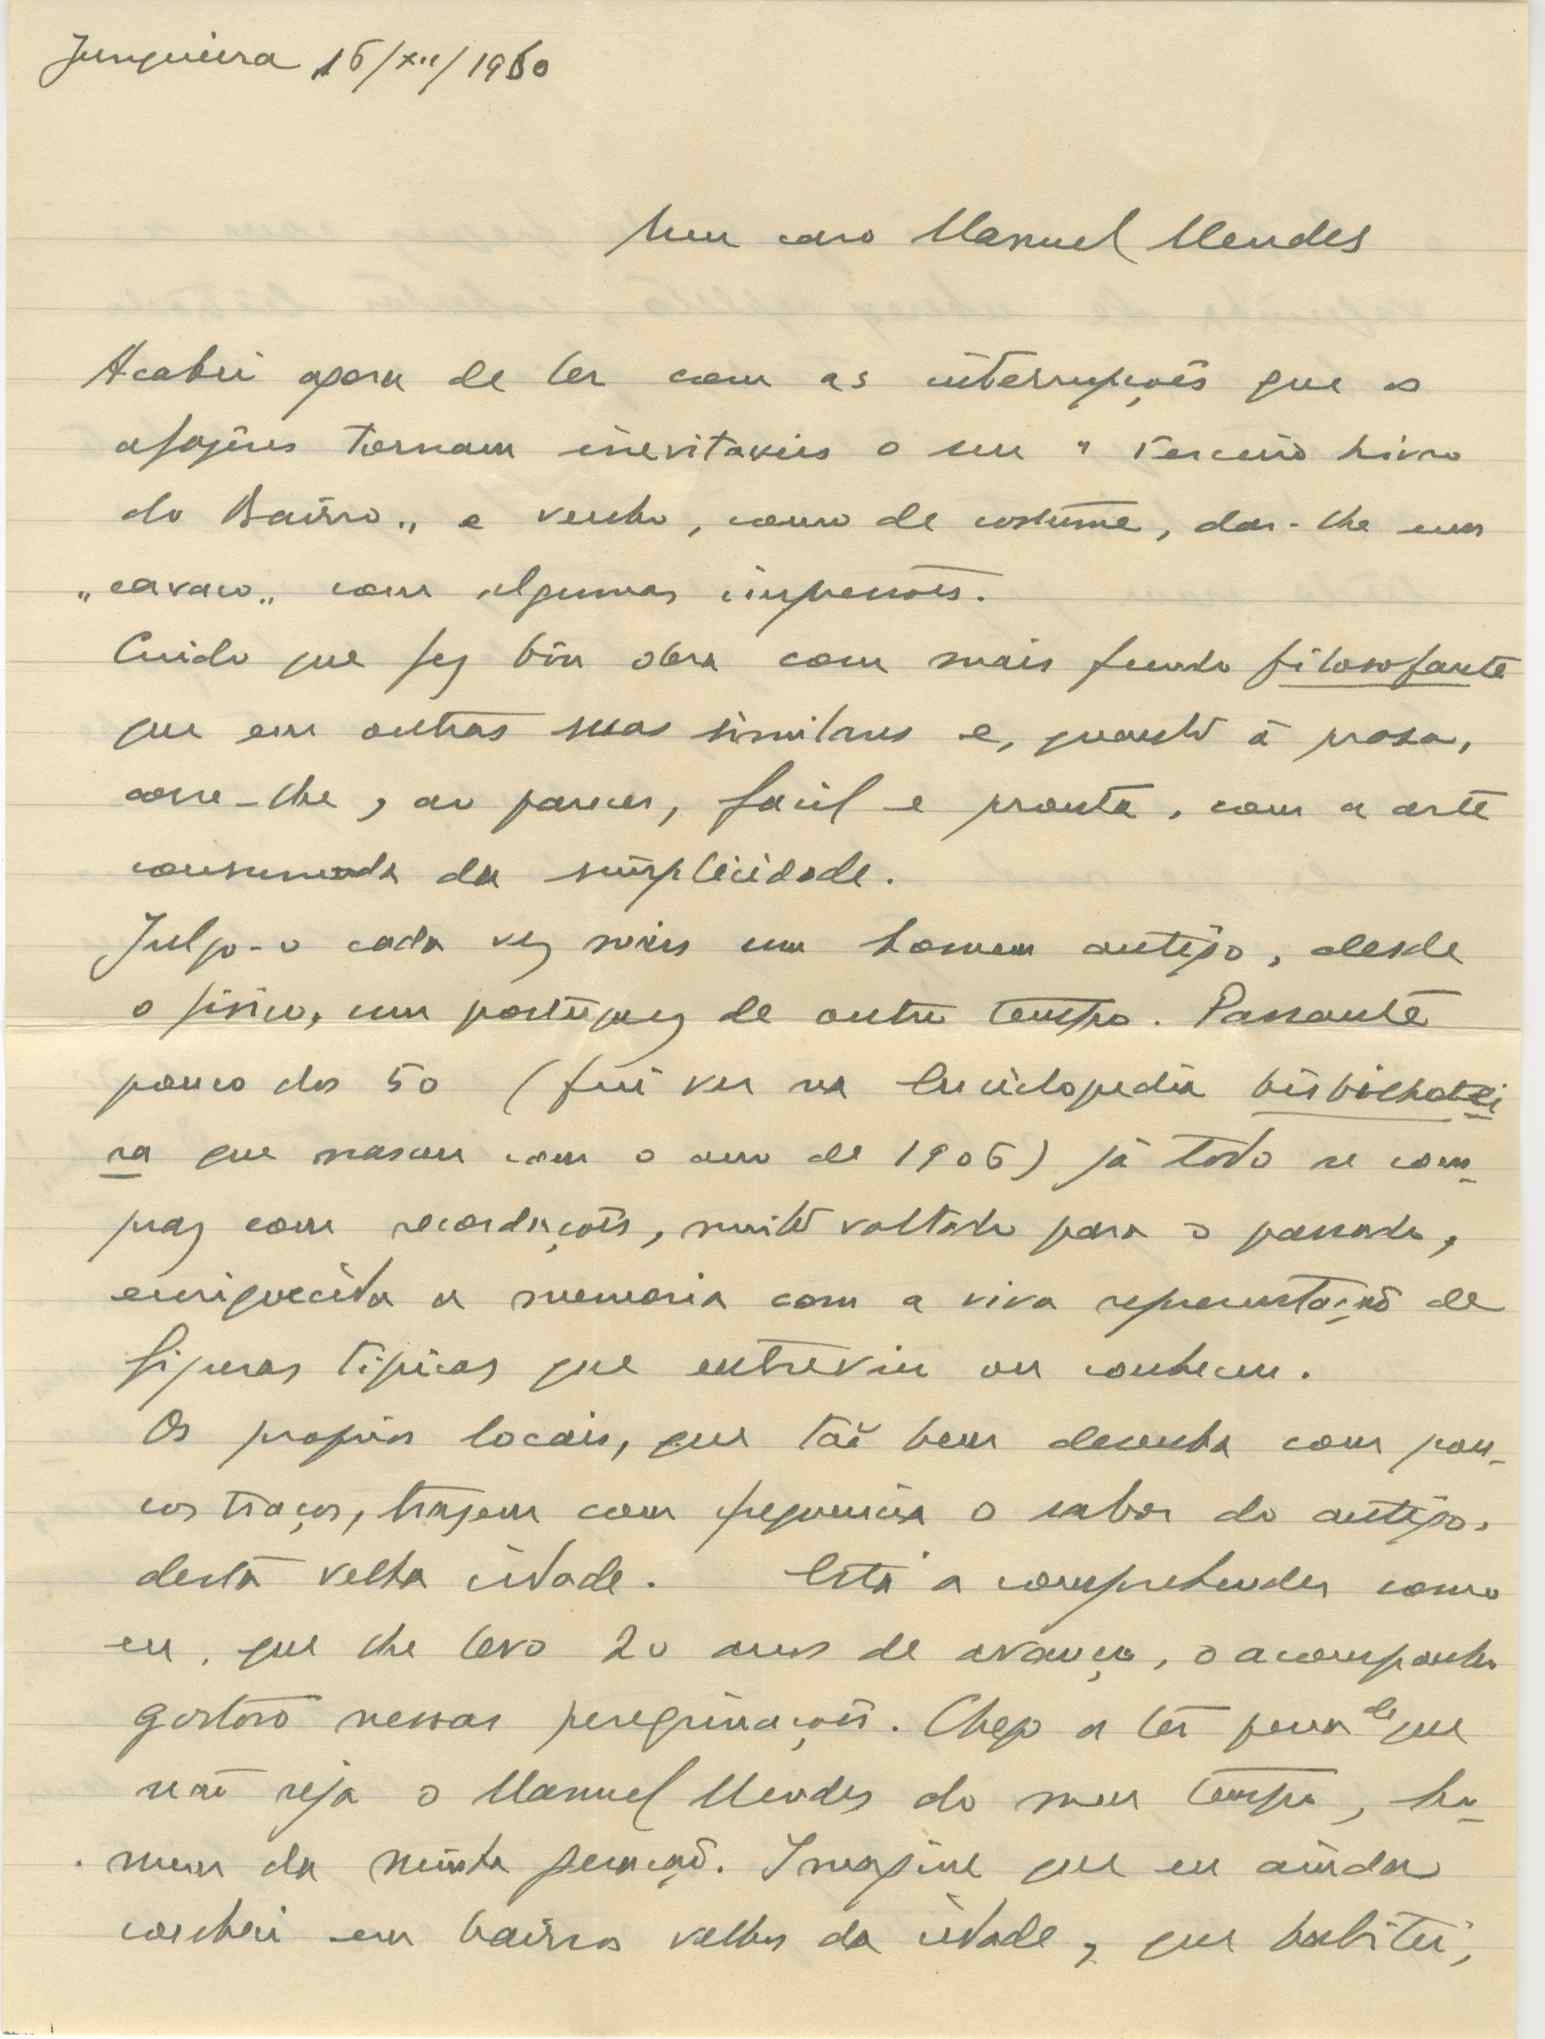 Junqueira 16/XII/1960
Meu caro Manuel Mendes
Acabei agora de ler com as interrupções que os
afazeres tornam inevitaveis o seu "Terceiro Livro
do Bairro" e venho, como de costume, dar-lhe um
"cavaco" com algumas impressões.
Cuido que fez bôa obra com mais fundo filosofante
que em outras suas similares e, quanto á prosa,
corre-lhe, ao parecer, facil e pronta, com a arte
consumada da simplicidade.
Julgo-o cada vez mais um homem antigo, desde
o fisico, um portuguez de outro tempo. Passante
pouco dos 50 (fui ver na Enciclopedia bisbilhotei
ra que nasceu com o ano de 1906) já todo se com-
praz com recordações, muito voltado para o passado,
enriquecida a memoria com a viva representação de
figuras tipicas que entreviu ou conheceu.
Os proprios locais, que tão bem desenha com pou-
cos traços, trazem com frequencia o sabor do antigo,
desta velha cidade. Está a comprehender como
eu, que lhe levo 20 anos de avanço, o acompanho
gostoso nessas peregrinações. Chego a ter pena de que
não seja o Manuel Mendes do meu tempo, ho-
mem da minha geração. Imagine que eu ainda
conheci em bairros velhos da cidade, que habitei,